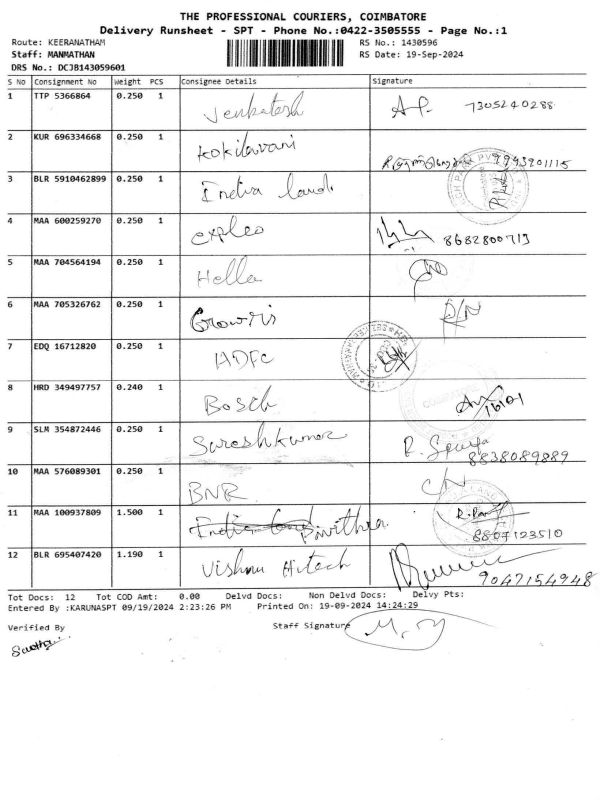 THE PROFESSIONAL COURIERS, COIMBATORE
Delivery Runsheet - SPT - Phone No.:0422-3505555 - Page No.:1
Route: KEERANATHAM RS No.: 1430596
Staff: MANMATHAN RS Date: 19-Sep-2024
DRS No.: DCJB143059601
S No Consignment No Weight PCS Consignee Details Signature
1 TTP 5366864 0.250 1 Venkatesh 7305240288
2 KUR 696334668 0.250 1 Kokilavani 9993901115
3 BLR 5910462899 0.250 1 India land
4 MAA 600259270 0.250 1 expleo 8682800713
5 MAA 704564194 0.250 1 Hella
6 MAA 705326762 0.250 1 Gowri
7 EDQ 16712820 0.250 1 HDFC
8 HRD 349497757 0.240 1 Bosch 16101
9 SLM 354872446 0.250 1 Sureshkumar 8838089889
10 MAA 576089301 0.250 1 BNR C/N
11 MAA 100937809 1.500 1 Pavithra 8807123510
12 BLR 695407420 1.190 1 Vishnu Hitech 9047154948
Tot Docs: 12 Tot COD Amt: 0.00 Delvd Docs: Non Delvd Docs: Delvy Pts:
Entered By :KARUNASPT 09/19/2024 2:23:26 PM Printed On: 19-09-2024 14:24:29
Verified By Staff Signature